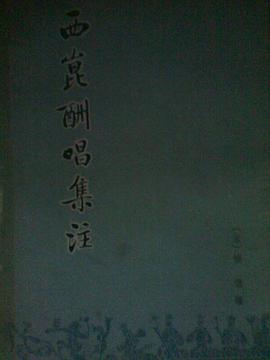 西崑酬唱集注